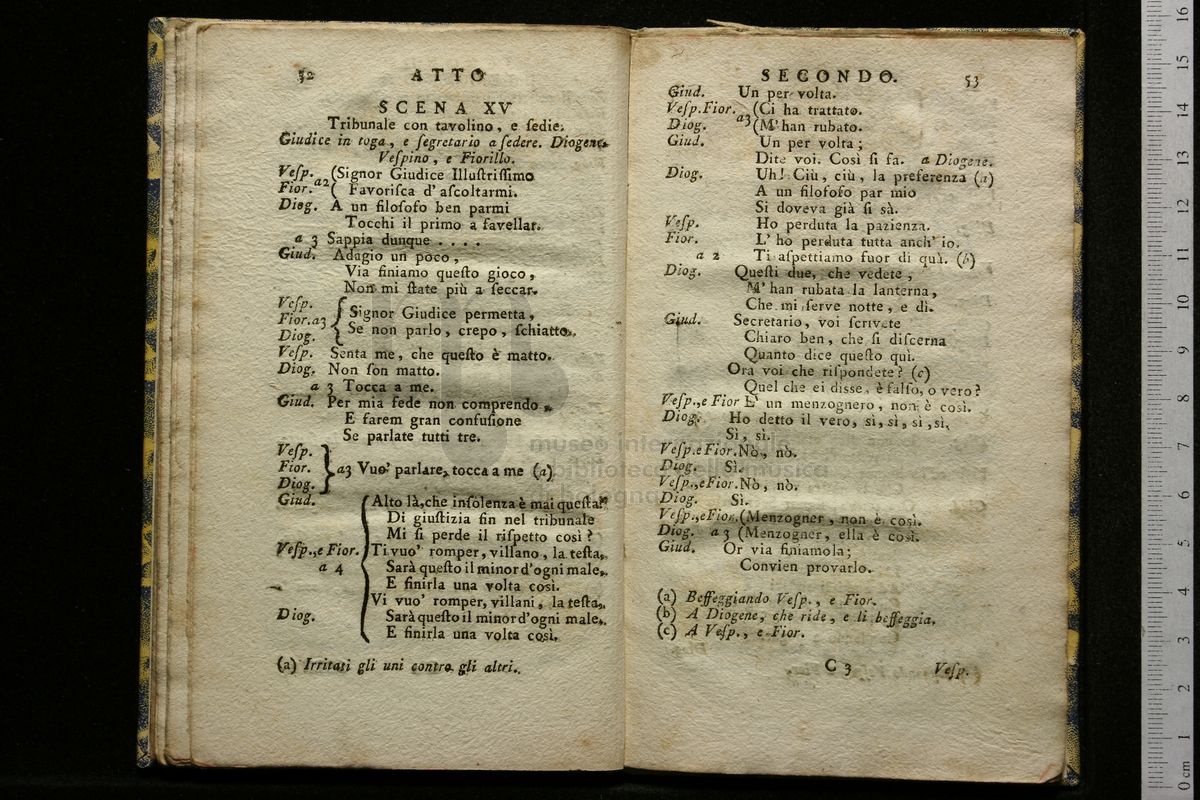 52 ATTO
SCENA XV
Tribunale con tavolino, e sedie.
Giudice in toga, e segretario a sedere. Diogene,
Veſpino, e Fiorillo.
Veſp. (Signor Giudice Illuſtriſſimo
Fior. a2 ( Favoriſca d' aſcoltarmi.
Diog. A un filoſofo ben parmi
Tocchi il primo a favellar.
a 3 Sappia dunque . . . .
Giud. Adagio un poco,
Via finiamo queſto gioco,
Non mi ſtate più a ſeccar.
Veſp.
Fior. a3 { Signor Giudice permetta,
Diog. Se non parlo, crepo, ſchiatto.
Veſp. Senta me, che queſto è matto.
Diog. Non ſon matto.
a 3 Tocca a me.
Giud. Per mia fede non comprendo,
E farem gran confuſione
Se parlate tutti tre.
Veſp.
Fior. } a3 Vuo' parlare, tocca a me (a)
Diog.
Giud. Alto là, che inſolenza è mai queſta!
Di giuſtizia fin nel tribunale
Mi ſi perde il riſpetto così?
Veſp., e Fior. Ti vuo' romper, villano, la teſta,
a 4 Sarà queſto il minor d'ogni male,
E finirla una volta così.
Vi vuo' romper, villani, la teſta,
Diog. Sarà queſto il minor d'ogni male,
E finirla una volta così.
(a) Irritati gli uni contro gli altri.
SECONDO. 53
Giud. Un per volta.
Veſp. Fior. a3 (Ci ha trattato.
Diog. (M' han rubato.
Giud. Un per volta;
Dite voi. Così ſi fa. a Diogene.
Diog. Uh! Ciù, ciù, la preferenza (a)
A un filoſofo par mio
Si doveva già ſi sà.
Veſp. Ho perduta la pazienza.
Fior. L' ho perduta tutta anch' io.
a 2 Ti aſpettiamo fuor di quì. (b)
Diog. Queſti due, che vedete,
M' han rubata la lanterna,
Che mi ſerve notte, e dì.
Giud. Secretario, voi ſcrivete
Chiaro ben, che ſi diſcerna
Quanto dice queſto quì.
Ora voi che riſpondete? (c)
Quel che ei disse, è falſo, o vero?
Veſp., e Fior E' un menzognero, non è così.
Diog. Ho detto il vero, sì, sì, sì, sì,
Sì, sì.
Veſp. e Fior. Nò, nò.
Diog. Sì.
Veſp., e Fior. Nò, nò.
Diog. Sì.
Veſp., e Fior. (Menzogner, non è così.
Diog. a 3 (Menzogner, ella è così.
Giud. Or via finiamola;
Convien provarlo.
(a) Beffeggiando Veſp., e Fior.
(b) A Diogene, che ride, e li beffeggia.
(c) A Veſp., e Fior.
C 3 Veſp.
museo internazionale
e biblioteca della musica
bologna
0 cm 1 2 3 4 5 6 7 8 9 10 11 12 13 14 15 16